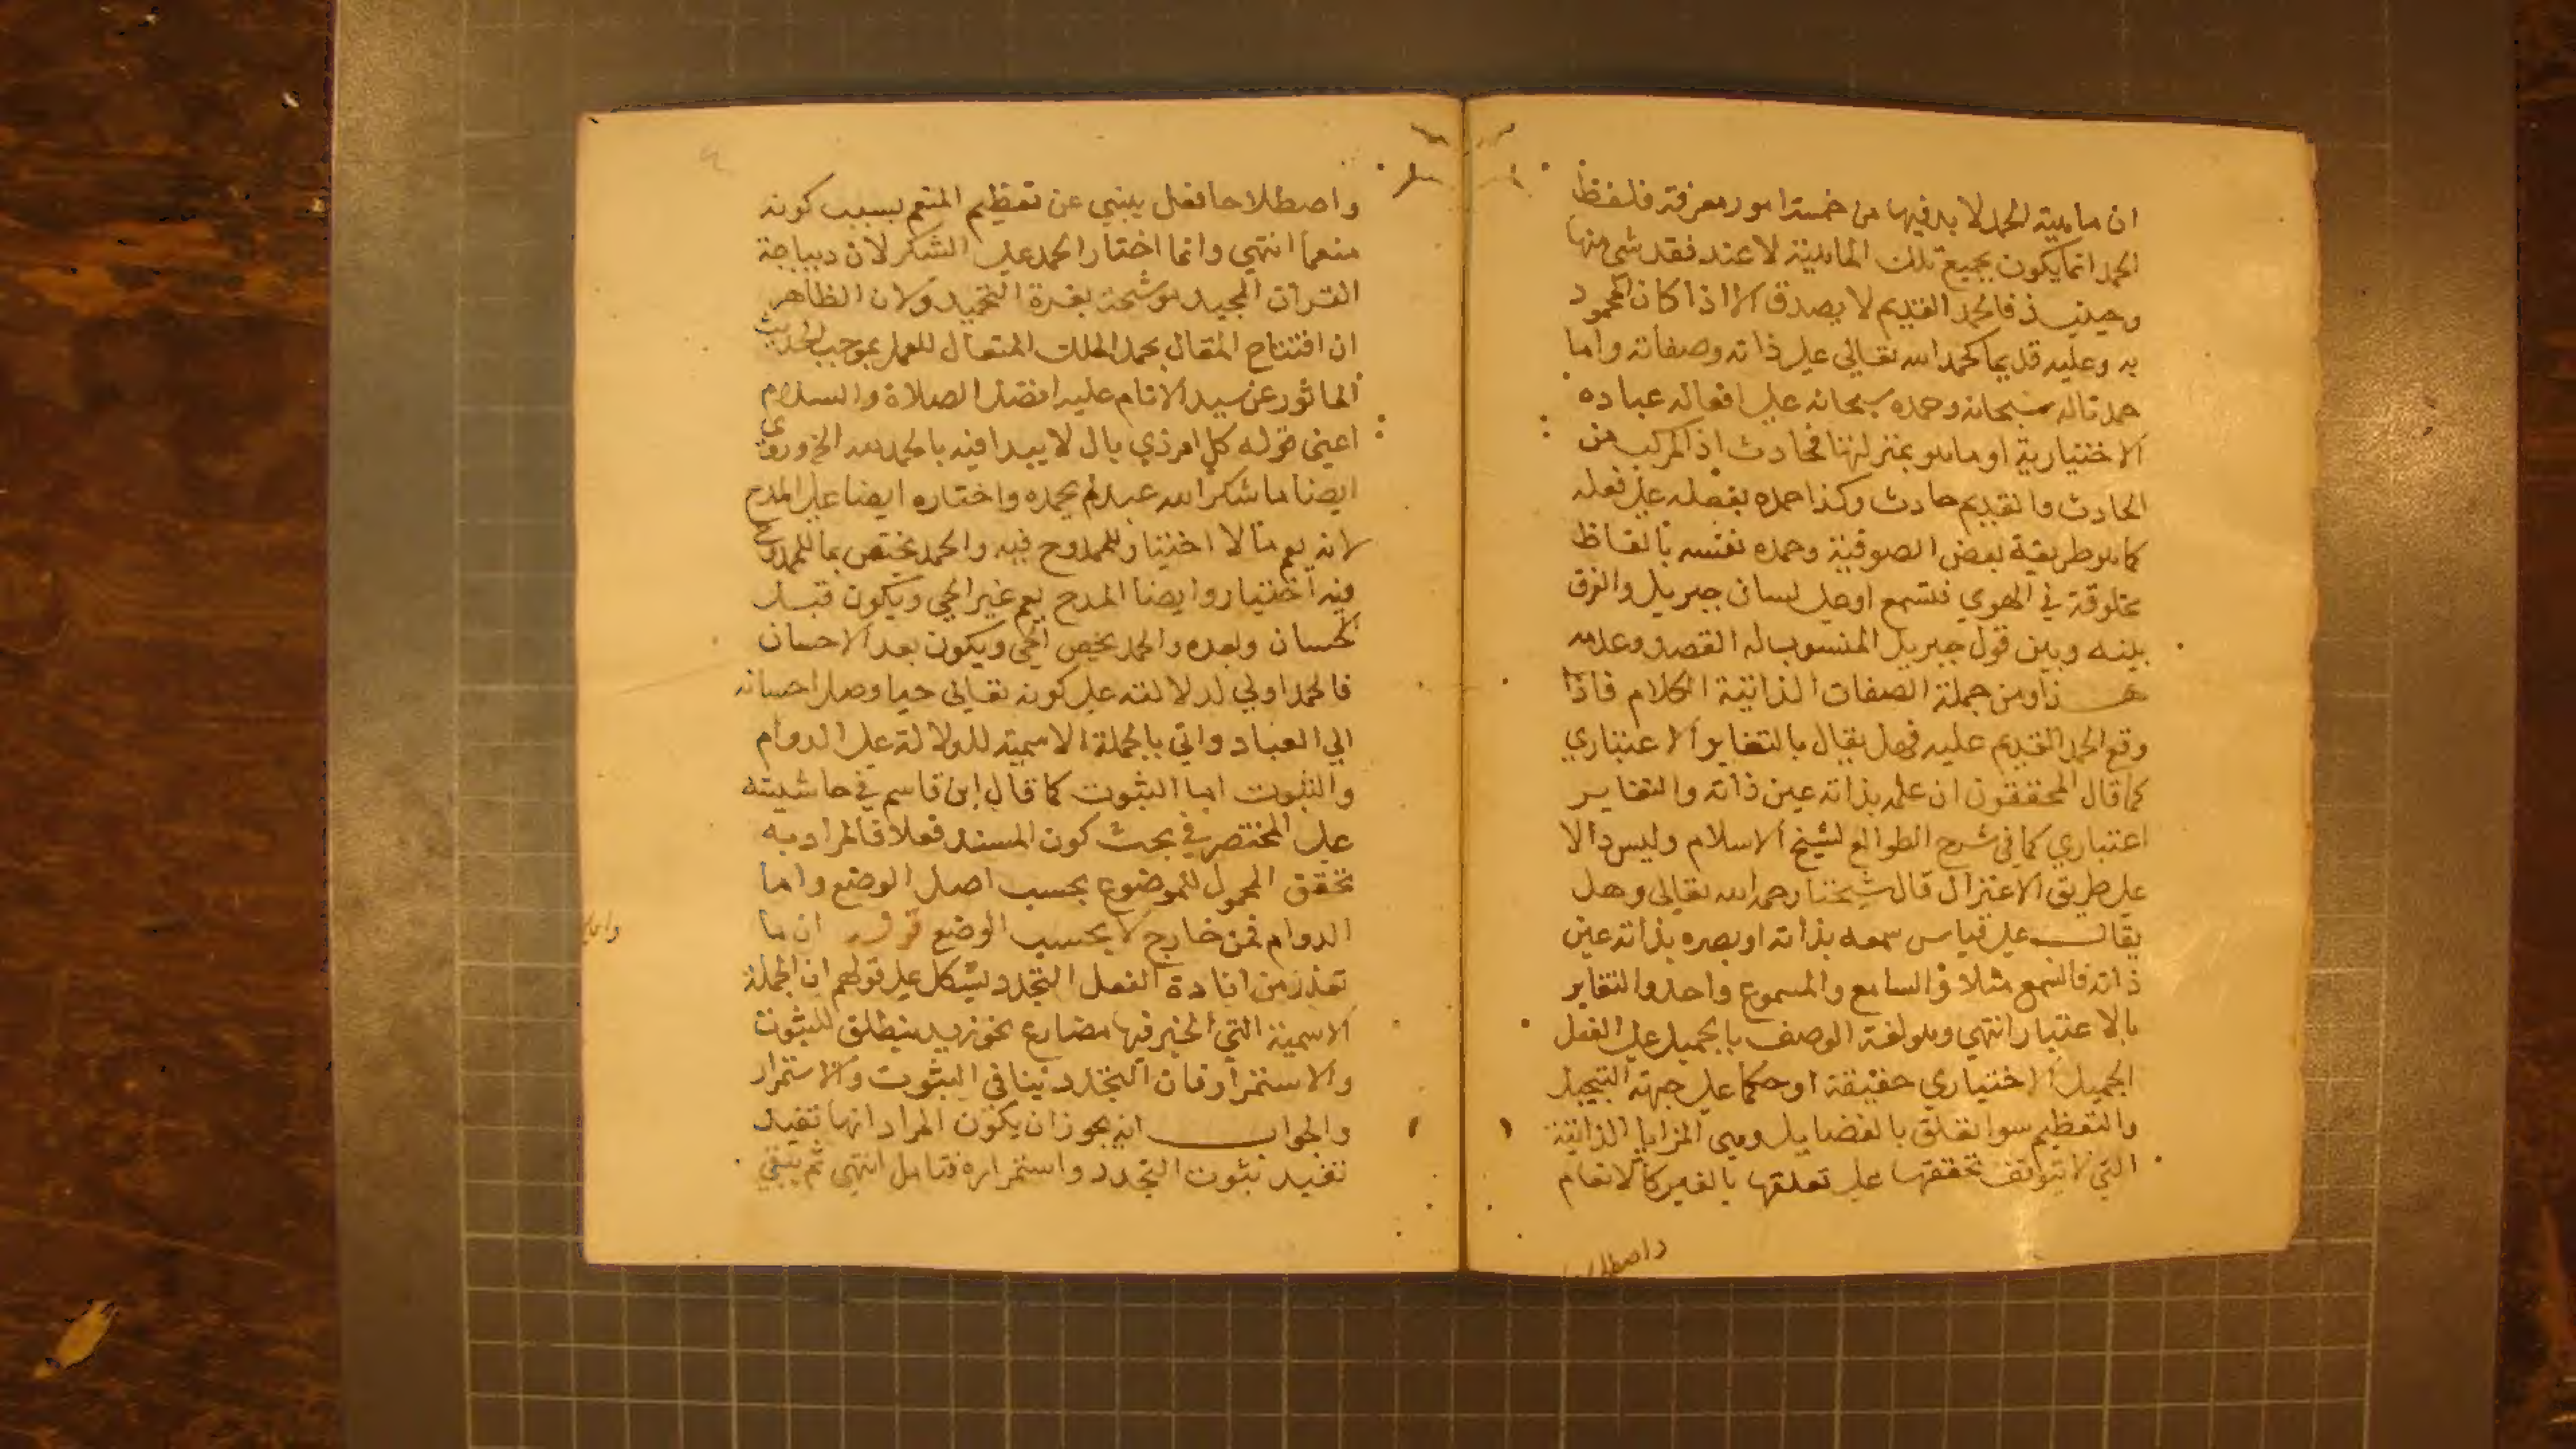 ان ماهية الحمد لا بد فيها من خمسة امور معرفة فلفظ
الحمد انما يكون بجميع تلك الماهية لا عند فقد شي منها
وحينيذ فالحمد القديم لا يصدق الا اذا كان المحمود
به وعليه قديما كحمد الله تعالي علي ذاته وصفاته واما
حمدنا له سبحانه وحمده سبحانه علي افعاله عباده
الاختيارية او ما هو بمنزلتها فحادث اذ المركب من
الحادث والقديم حادث وكذا حمده بفعله علي فعله
كما هو طريقة بعض الصوفية وحمده نفسه بالفاظ
مخلوقة في الهوي فتسمع او علي لسان جبريل والفرق
بينه وبين قول جبريل المنسوب له القصد وعدمه
هذا ومن جملة الصفات الذاتية الكلام فاذا
وقع الحمد القديم عليه فهل يقال بالتغاير الاعتباري
كما قال المحققون ان علمه بذاته عين ذاته والتغاير
اعتباري كما في شرح الطوالع لشيخ الاسلام وليس دالا
علي طريق الاعتزال قال شيخنا رحمه الله تعالي وهل
يقال علي قياس سمعه بذاته او بصره بذاته عين
ذاته فالسمع مثلا والسامع والمسموع واحد والتغاير
بالاعتبار انتهي وهو لغة الوصف بالجميل علي الفعل
الجميل الاختياري حقيقة او حكما علي جهة التبجيل
والتعظيم سوا تعلق بالفضايل وهي المزايا الذاتية
التي لا تتوقف تحققها علي تعلقها بالغير كالانعام
واصطلاحا
واصطلاحا فعل ينبي عن تعظيم المنعم بسبب كونه
منعما انتهي وانما اختار الحمد علي الشكر لان ديباجة
القران المجيد موشحة بغرة التحميد ولان الظاهر
ان افتتاح المقال بحمد الملك المتعال للعمل بموجب الحديث
الماثور عن سيد الانام عليه افضل الصلاة والسلام
اعني قوله كل امر ذي بال لا يبدا فيه بالحمد لله الخ وروي
ايضا ما شكر الله عبد لم يحمده واختاره ايضا علي المدح
لانه يعم ما لا اختيار للممدوح فيه والحمد يختص بما للممدوح
فيه اختيار وايضا المدح يعم غير الحي ويكون قبل
الحسان وبعده والحمد يخص الحي ويكون بعد الاحسان
فالحمد اولي لدلالته علي كونه تعالي حيا وصل احسانه
الي العباد واتي بالجملة الاسمية للدلالة علي الدوام
والثبوت اما الثبوت كما قال ابن قاسم في حاشيته
علي المختصر في بحث كون المسند فعلا فالمراد به
تحقق المحمول للموضوع بحسب اصل الوضع واما
الدوام فمن خارج لا بحسب الوضع قوله ان ما
تقدم من افادة الفعل التجدد يشكل علي قولهم ان الجملة
الاسمية التي الخبر فيها مضارع نحو زيد ينطلق للثبوت
والاستمرار فان التجدد ينافي الثبوت والاستمرار
والجواب انه يجوز ان يكون المراد انها تفيد
تفيد ثبوت التجدد واستمراره فتامل انتهي ثم ينبغي